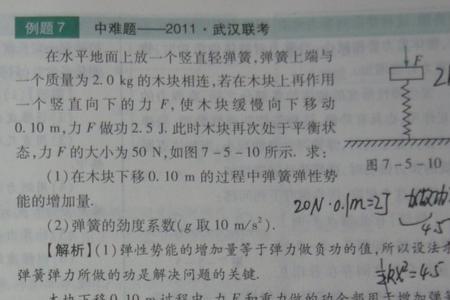 例题7 中难题——2011·武汉联考
在水平地面上放一个竖直轻弹簧,弹簧上端与
一个质量为2.0 kg的木块相连,若在木块上再作用
一个竖直向下的力F,使木块缓慢向下移动
0.10 m,力F做功2.5 J.此时木块再次处于平衡状
态,力F的大小为50 N,如图7-5-10所示.求:
F
图7-5-10
(1)在木块下移0.10 m的过程中弹簧弹性势
能的增加量.
20N·0.1m=2J
4.5
(2)弹簧的劲度系数(g取10 m/s²).
【解析】(1)弹性势能的增加量等于弹力做负功的值,所以设法求
弹簧弹力所做的功是解决问题的关键.
½kx²=4.5
木块下移0.10 m过程中,力F和重力做的功全部用于增加弹簧